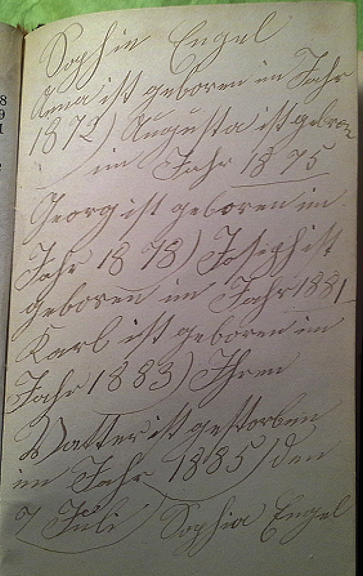 Sophie Engel
Anna ist geboren im Jahr
1872) Augusta ist geboren
im Jahr 1875
Georg ist geboren im
Jahr 1878) Joseph ist
geboren im Jahr 1881
Karl ist geboren im
Jahr 1883) Ihren
Vatter ist gestorben
im Jahr 1885) den
7 Juli Sophia Engel